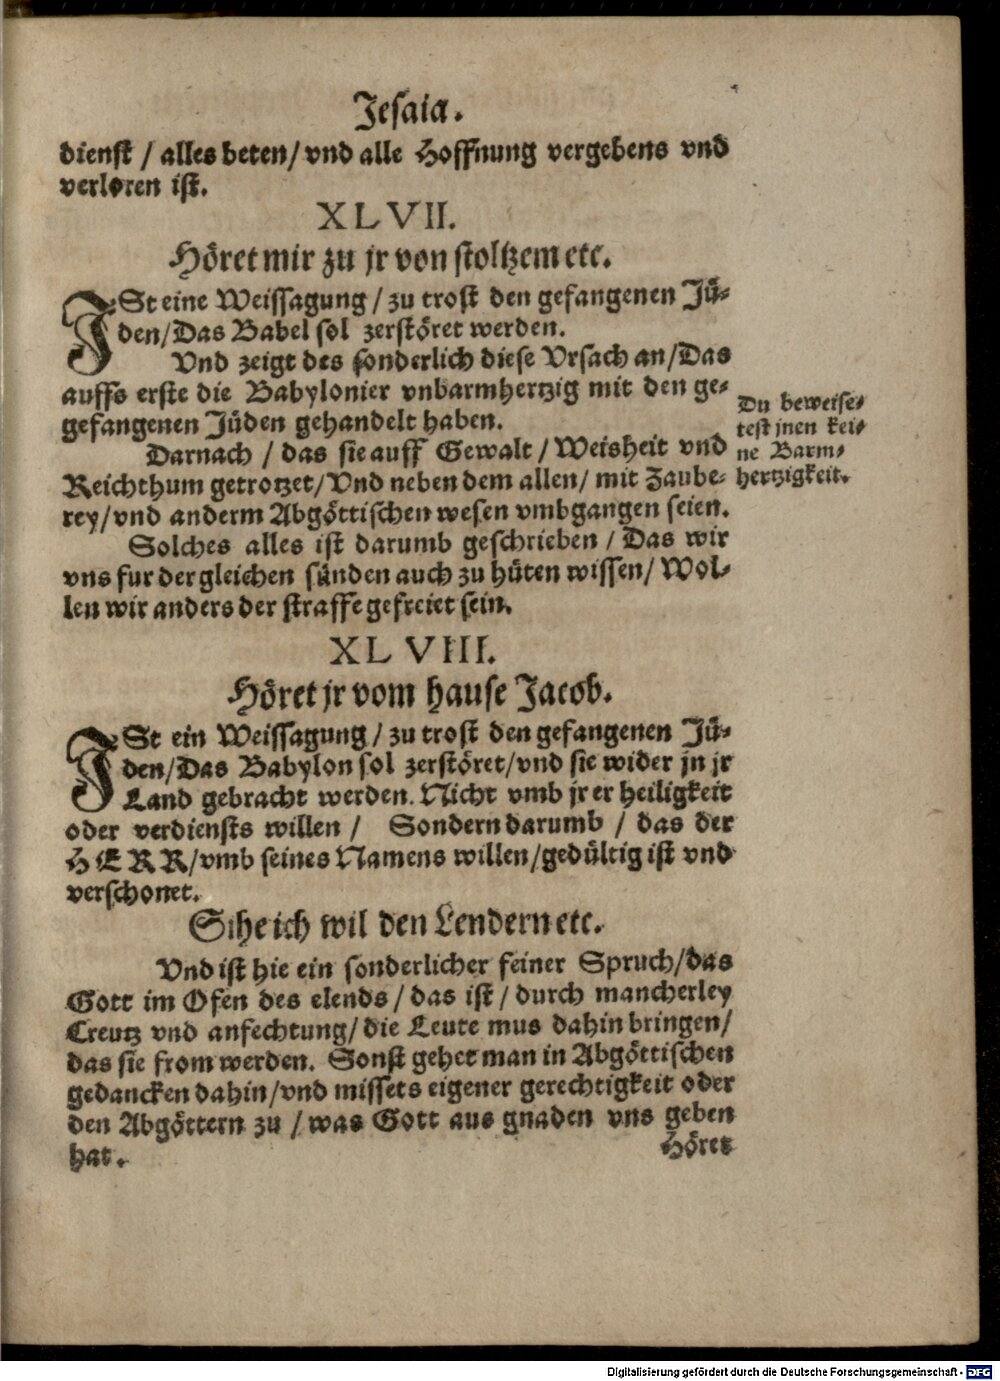 Jesaia.
dienst / alles beten/ vnd alle Hoffnung vergebens vnd
verloren ist.
XLVII.
Höret mir zu jr von stoltzem etc.
JSt eine Weissagung / zu trost den gefangenen Jü-
den/Das Babel sol zerstöret werden.
Vnd zeigt des sonderlich diese Vrsach an/Das
auffs erste die Babylonier vnbarmhertzig mit den ge-
gefangenen Jüden gehandelt haben.
Du beweise-
test jnen kei-
ne Barm-
hertzigkeit.
Darnach / das sie auff Gewalt / Weisheit vnd
Reichthum getrotzet/Vnd neben dem allen/ mit Zaube-
rey/vnd anderm Abgöttischen wesen vmbgangen seien.
Solches alles ist darumb geschrieben / Das wir
vns fur der gleichen sünden auch zu hüten wissen/ Wol-
len wir anders der straffe gefreiet sein.
XLVIII.
Höret jr vom hause Jacob.
JSt ein Weissagung / zu trost den gefangenen Jü-
den/Das Babylon sol zerstöret/vnd sie wider jn jr
Land gebracht werden. Nicht vmb jrer heiligkeit
oder verdiensts willen / Sondern darumb / das der
HERR/vmb seines Namens willen/gedültig ist vnd
verschonet.
Sihe ich wil den Lendern etc.
Vnd ist hie ein sonderlicher feiner Spruch/das
Gott im Ofen des elends / das ist / durch mancherley
Creutz vnd anfechtung/ die Leute mus dahin bringen/
das sie from werden. Sonst gehet man in Abgöttischen
gedancken dahin/vnd missets eigener gerechtigkeit oder
den Abgöttern zu / was Gott aus gnaden vns geben
hat.
Höret
Digitalisierung gefördert durch die Deutsche Forschungsgemeinschaft - DFG